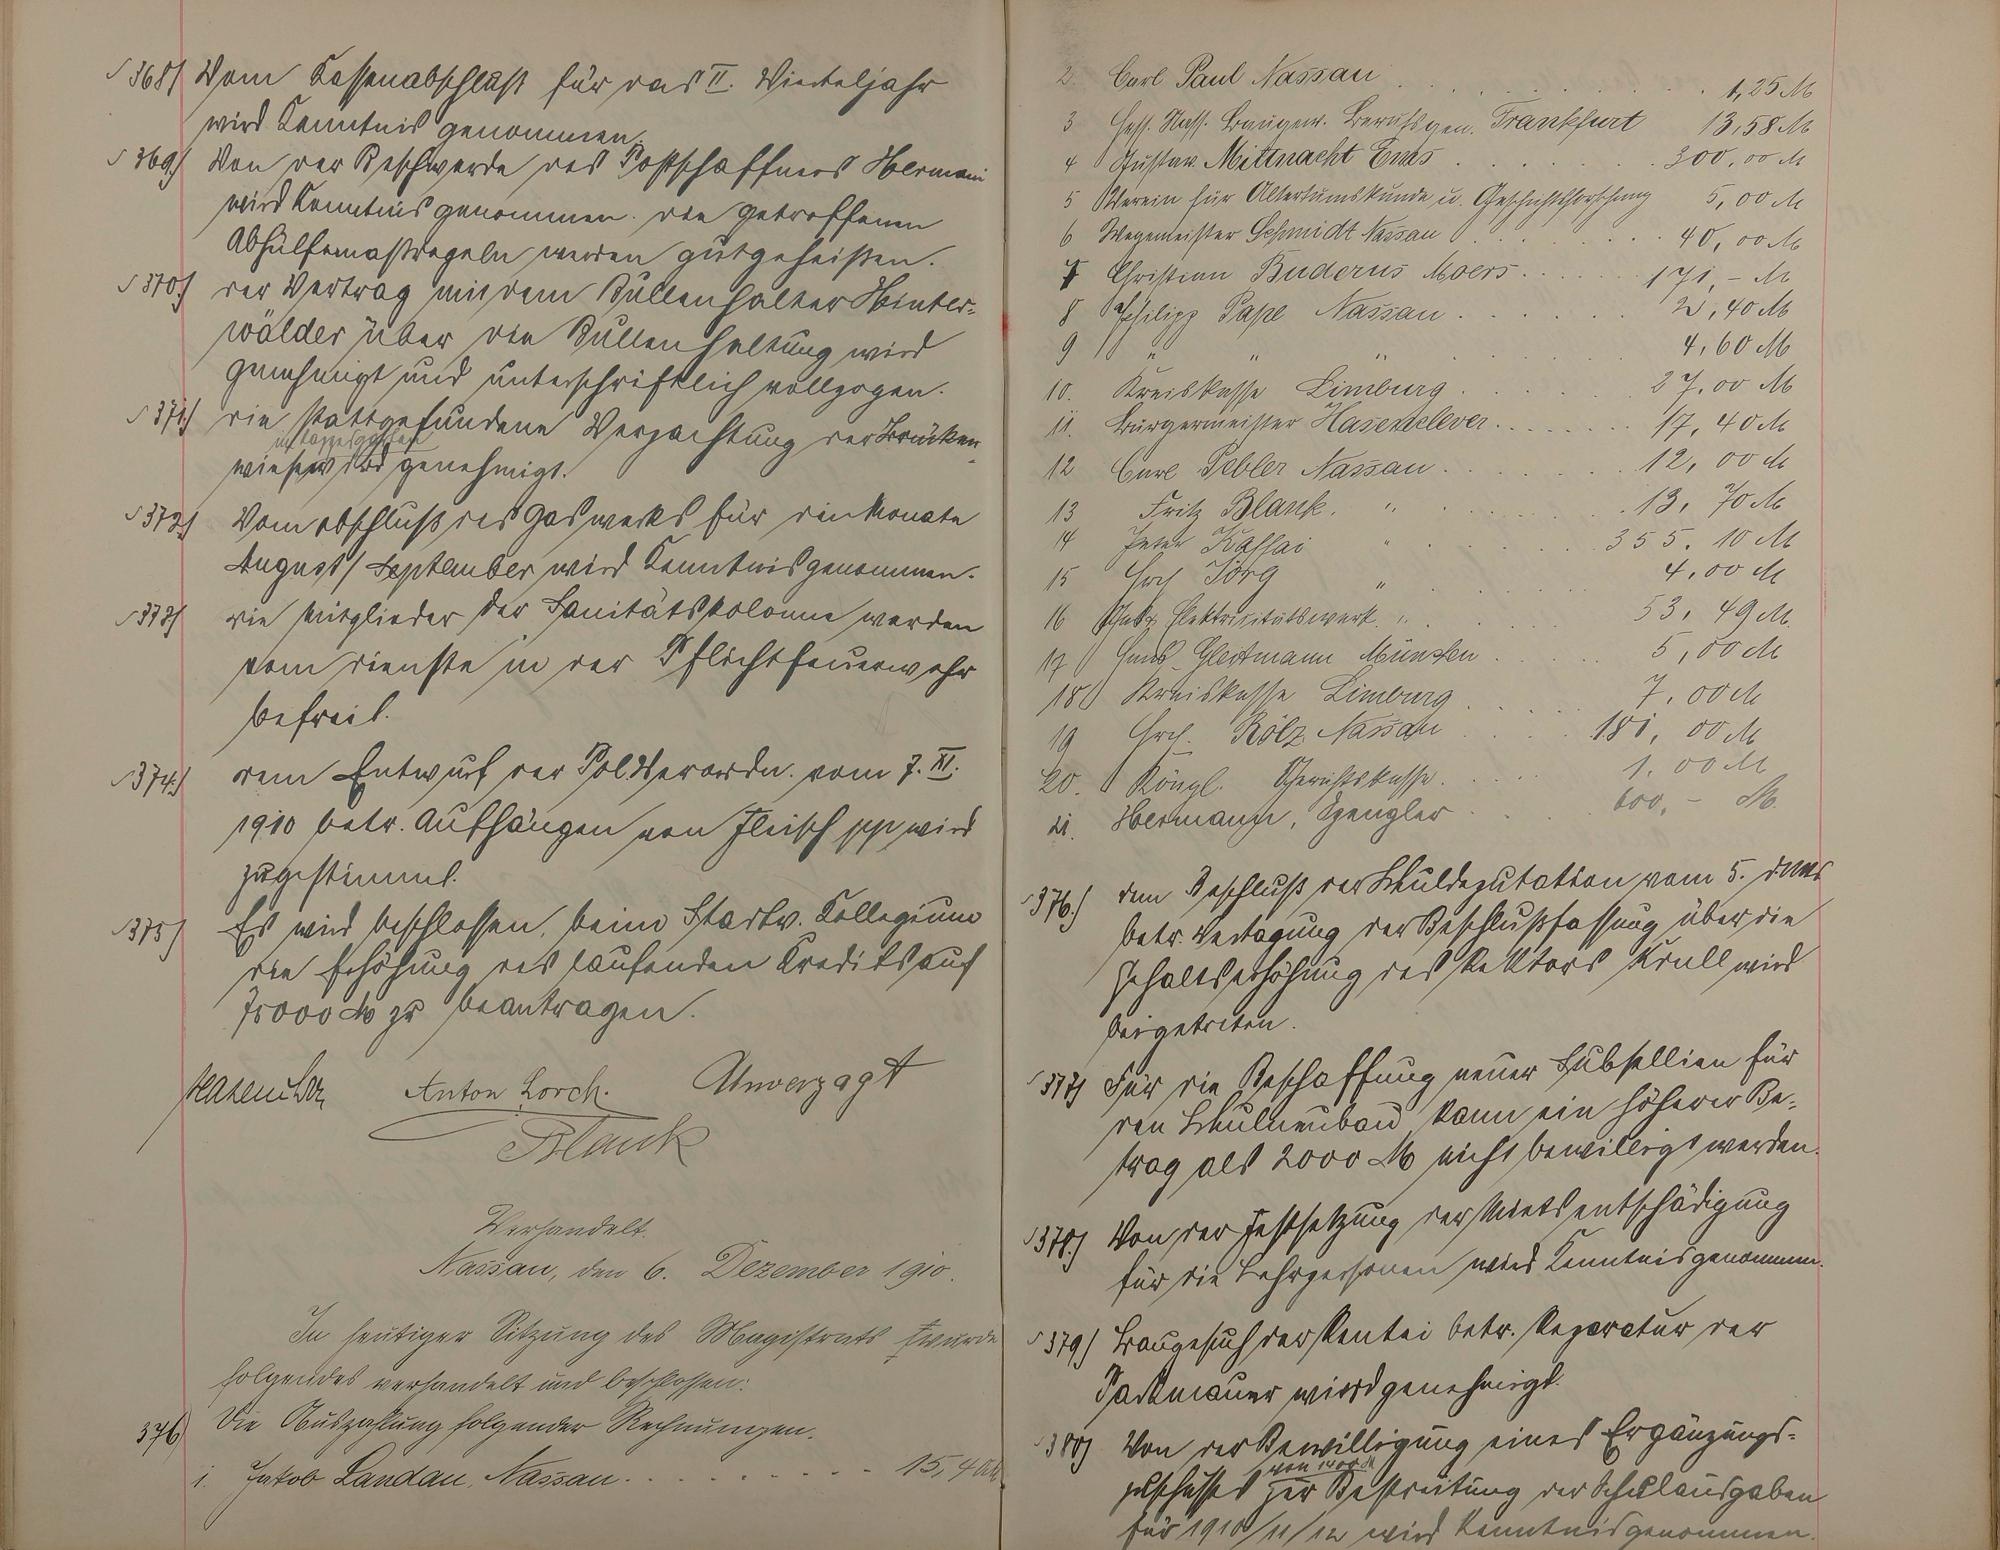 368) Vom Kassenabschluß für das II. Vierteljahr
wird Kenntnis genommen.
369) Von der Beschwerde des Postschaffners Hermani
wird Kenntnis genommen. die getroffenen
Abhülfemaßregeln werden gutgeheißen.
370) der Vertrag mit dem Bullenhalter Hinter-
wälder über die Bullenhaltung wird
genehmigt und unterschriftlich vollzogen.
371) die stattgefundene Verpachtung der Brücken-
wiese wird genehmigt.
372) Vom Abschluß des Gaswerks für die Monate
August/September wird Kenntnis genommen.
373) die Mitglieder der Sanitätskolonne werden
vom Dienste in der Pflichtfeuerwehr
befreit.
374) dem Entwurf der Pol. Verordn. vom 7. XI.
1910 betr. Aufhängen von Fleisch pp wird
zugestimmt.
375) Es wird beschlossen, beim Stadtv. Kollegium
die Erhöhung des laufenden Kredits auf
75000 M zu beantragen.
Hasenclever Anton Lorch. Unverzagt
Blank
Verhandelt.
Nassau, den 6. Dezember 1910.
In heutiger Sitzung des Magistrats wurde
folgendes verhandelt und beschlossen:
376) Die Auszahlung folgender Rechnungen.
1. Jakob Landau, Nassau 15,40 M
2. Carl Paul Nassau 1,25 M
3 Hess. Nass. Baugew. Berufsgen. Frankfurt 13,58 M
4 Gustav Mittnacht Ems 300,00 M
5 Verein für Altertumskunde u. Geschichtsforschung 5,00 M
6 Wegemeister Schmidt Nassau 40,00 M
7 Christian Buderus Moers 171,- M
8 Philipp Pape Nassau 21,40 M
9 " " " 4,60 M
10. Kreiskasse Limburg 27,00 M
11. Bürgermeister Hasenclever 17,40 M
12 Carl Pebler Nassau 12,00 M
13 Fritz Blank " 13,70 M
14 Peter Kassai " 355.10 M
15 Hrch Jörg " 4,00 M
16 Elektricitätswerk " 53,49 M.
17 Münster 5,00 M
18 Kreiskasse Limburg 7,00 M
19 Hrch. Bölz Nassau 181,00 M
20. Königl. Gerichtskasse 1,00 M
21. Hermann, Spengler 600,- M.
376.) dem Beschluß der Schuldeputation vom 5. d. Mts
betr. Vertagung der Beschlußfassung über die
Gehaltserhöhung des Rektors Krull wird
beigetreten.
377) Für die Beschaffung neuer Subsellien für
den Schulneubau kann ein höherer Be-
trag als 2000 M nicht bewilligt werden.
378.) Von der Festsetzung der Mietsentschädigung
für die Lehrpersonen wird Kenntnis genommen.
379) Baugesuch der Rentei betr. Reparatur der
Parkmauer wird genehmigt.
380) Von der Bewilligung eines Ergänzungs-
zuschusses von 1400 M zur Bestreitung der Schulausgaben
für 1910/11/12 wird Kenntnis genommen.